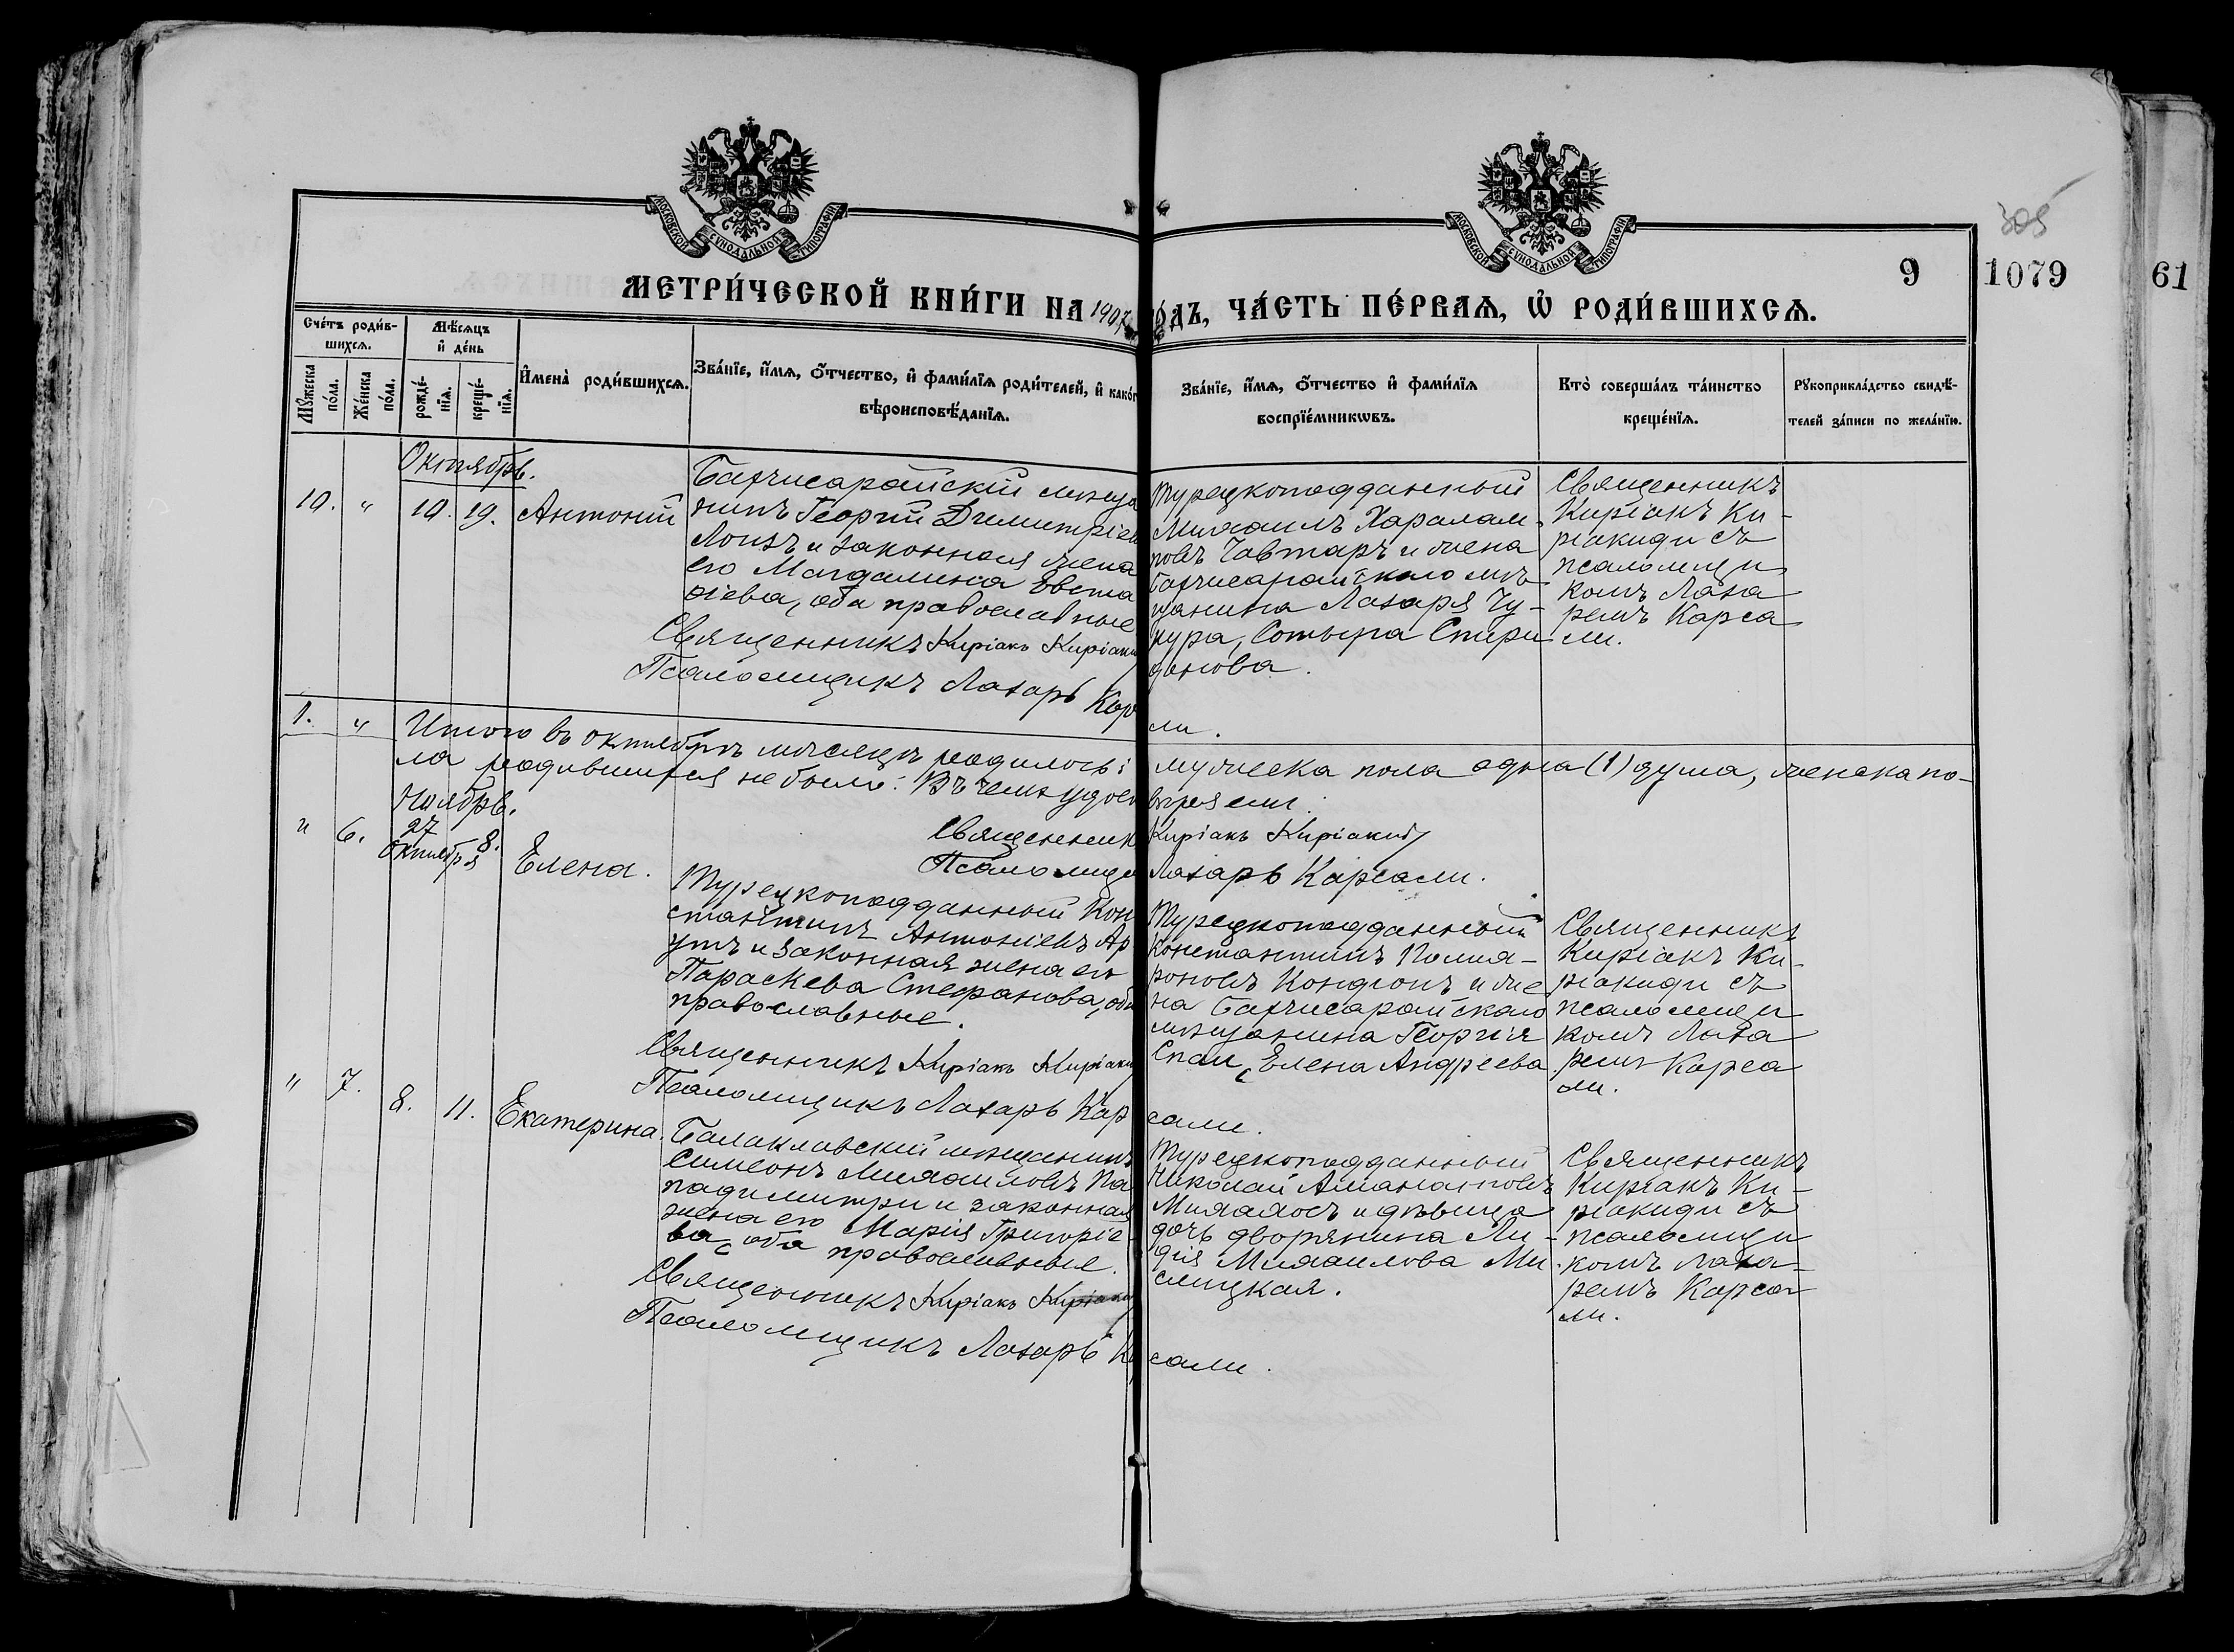 МОСКОВСКОЙ СѴНОДАЛЬНОЙ ТИПОГРАФІИ
МОСКОВСКОЙ СѴНОДАЛЬНОЙ ТИПОГРАФІИ
305
9
1079
61
МЕТРИ́ЧЕСКОЙ КНИ́ГИ НА 1907 О́ДЪ, ЧА́СТЬ ПЕ́РВАѦ, Ѡ҆ РОДИ́ВШИХСѦ.
Сче́тъ роди́в-
шихсѧ.
Мѣ́сѧцъ
и҆ де́нь
Мꙋ́жеска
по́ла.
Же́нска
по́ла.
рожде́-
нїѧ.
креще́-
нїѧ.
И҆мена̀ роди́вшихсѧ.
Зва́нїе, и҆́мѧ, ѻ҆́тчество, и҆ фами́лїѧ роди́телей, и҆ како́г
вѣроисповѣ́данїѧ.
Зва́нїе, и҆́мѧ, ѻ҆́тчество и҆ фами́лїѧ
воспрїе́мникѡвъ.
Кто̀ соверша́лъ та́инство
креще́нїѧ.
Рꙋкоприкла́дство свидѣ́-
телей за́писи по жела́нїю.
Октябрь.
10. " 10. 19. Антоній
Бахчисарайскій мѣща
нинъ Георгій Димитріев
Лоизъ и законная жена
его Магдалина Евста
ѳіева, оба православные
Священникъ Киріакъ Киріаки
Псаломщикъ Лазарь Кар
Турецкоподданный
Михаилъ Харалам-
повъ Чавтаръ и жена
Бахчисарайскаго мѣ-
щанина Лазаря Чу-
кура, Сотыра Спири
донова.
ли.
Священникъ
Киріакъ Ки-
ріакиди съ
псаломщи
комъ Лаза
ремъ Карса
ли.
1. " Итого въ октябрѣ мѣсяцѣ родилось: мужеска пола одна (1) душа, женска по-
ла родившихся не было. Въ чемъ удос вѣряемъ:
Священник Киріакъ Киріакиди
Псаломщи Лазарь Карсали.
Ноябрь.
" 6. 27 Октября 8. Елена.
Турецкоподданный Кон
стантинъ Антоніевъ Ар
утъ и законная жена его
Параскева Стефанова, оба
православные.
Священникъ Киріакъ Киріаки
Псаломщикъ Лазарь Кар
Турецкоподданный
Константинъ
роновъ Кондіонъ и же
на Бахчисарайскаго
мѣщанина Георгія
Спаи, Елена Андреева
сали.
Священникъ
Киріакъ Ки-
ріакиди съ
псаломщи
комъ Лаза
ремъ Карса
ли.
" 7. 8. 11. Екатерина.
Балаклавскій мѣщанинъ
Симеонъ Михаиловъ Па
падимитри и законная
жена его Марія Григоріе-
ва, оба православные.
Священникъ Киріакъ Киріаки
Псаломщикъ Лазарь К
Турецкоподданный
Николай
Михаилосъ и дѣвица
дочь дворянина Ли-
дія Михаилова Ми-
слицкая.
сали.
Священникъ
Киріакъ Ки-
ріакиди съ
псаломщи
комъ Лаза-
ремъ Карса-
ли.